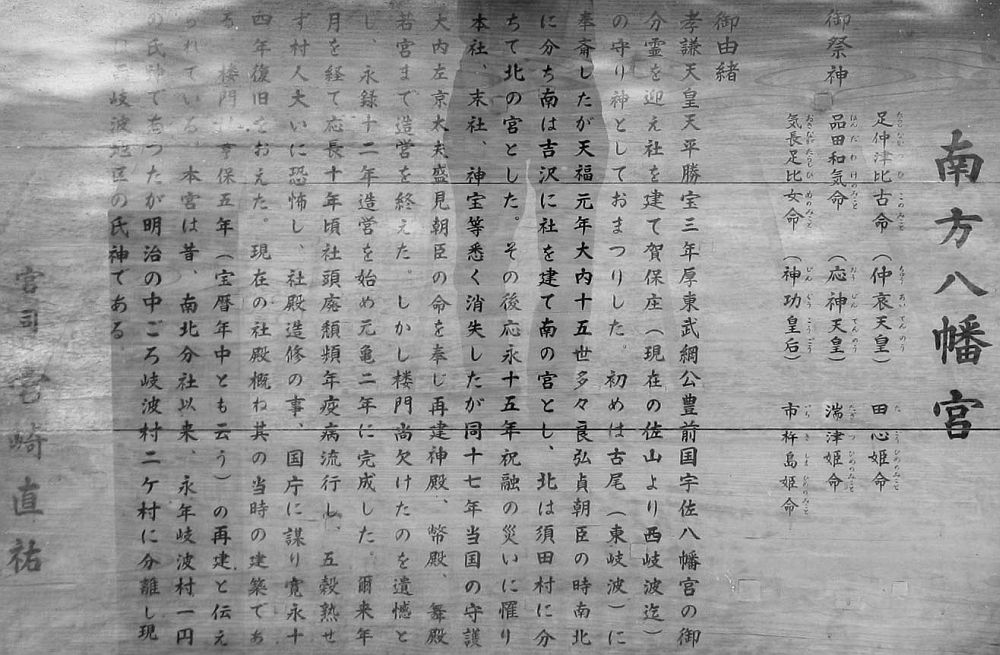 南方八幡宮
御祭神
足仲津比古命(仲哀天皇) 田心姫命
品田和気命(応神天皇) 湍津姫命
気長足比女命(神功皇后) 市杵島姫命
御由緒
孝謙天皇天平勝宝三年厚東武綱公豊前国宇佐八幡宮の御
分霊を迎え社を建て賀保庄(現在の佐山より西岐波迄)
の守り神としておまつりした。初めは古尾(東岐波)に
奉斎したが天福元年大内十五世多々良弘貞朝臣の時南北
に分ち南は吉沢に社を建て南の宮とし、北は須田村に分
ちて北の宮とした。その後応永十五年祝融の災いに罹り
本社、末社、神宝等悉く消失したが同十七年当国の守護
大内左京大夫盛見朝臣の命を奉じ再建神殿、幣殿、舞殿
若宮まで造営を終えた。しかし楼門尚欠けたのを遺憾と
し、永録十二年造営を始め元亀二年に完成した。爾来年
月を経て応長十年頃社頭廃頽頻年疫病流行し、五穀熟せ
ず村人大いに恐怖し、社殿造修の事、国庁に謀り寛永十
四年復旧をおえた。現在の社殿概ね其の当時の建築であ
る。楼門は享保五年(宝暦年中とも云う)の再建と伝え
られている。本宮は昔、南北分社以来、永年岐波村一円
の氏神であつたが明治の中ごろ岐波村二ケ村に分離し現
岐波地区の氏神である。
宮司 宮崎直祐